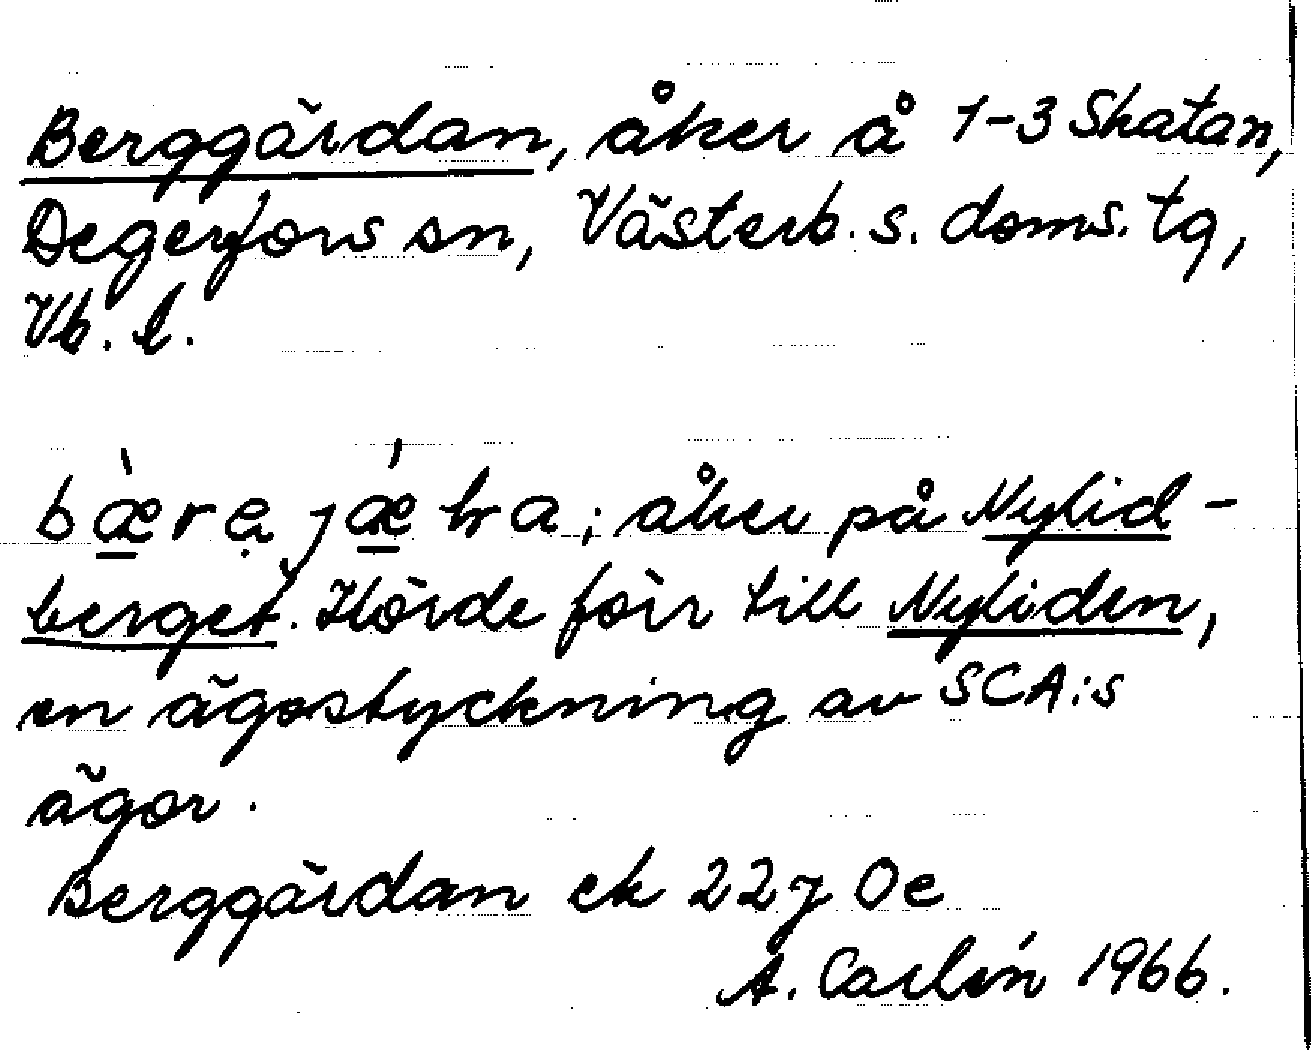 Berggärdan, åker å 1-3 Skatan,
Degerfors sn, Västerb. s. doms. tg,
Vb. l.
bæ̀rẹjǽra; åker på Nylid-
berget. Hörde förr till Nyliden,
en ägostyckning av SCA:s
ägor.
Berggärdan ek 22j Oe
A. Carlén 1966.